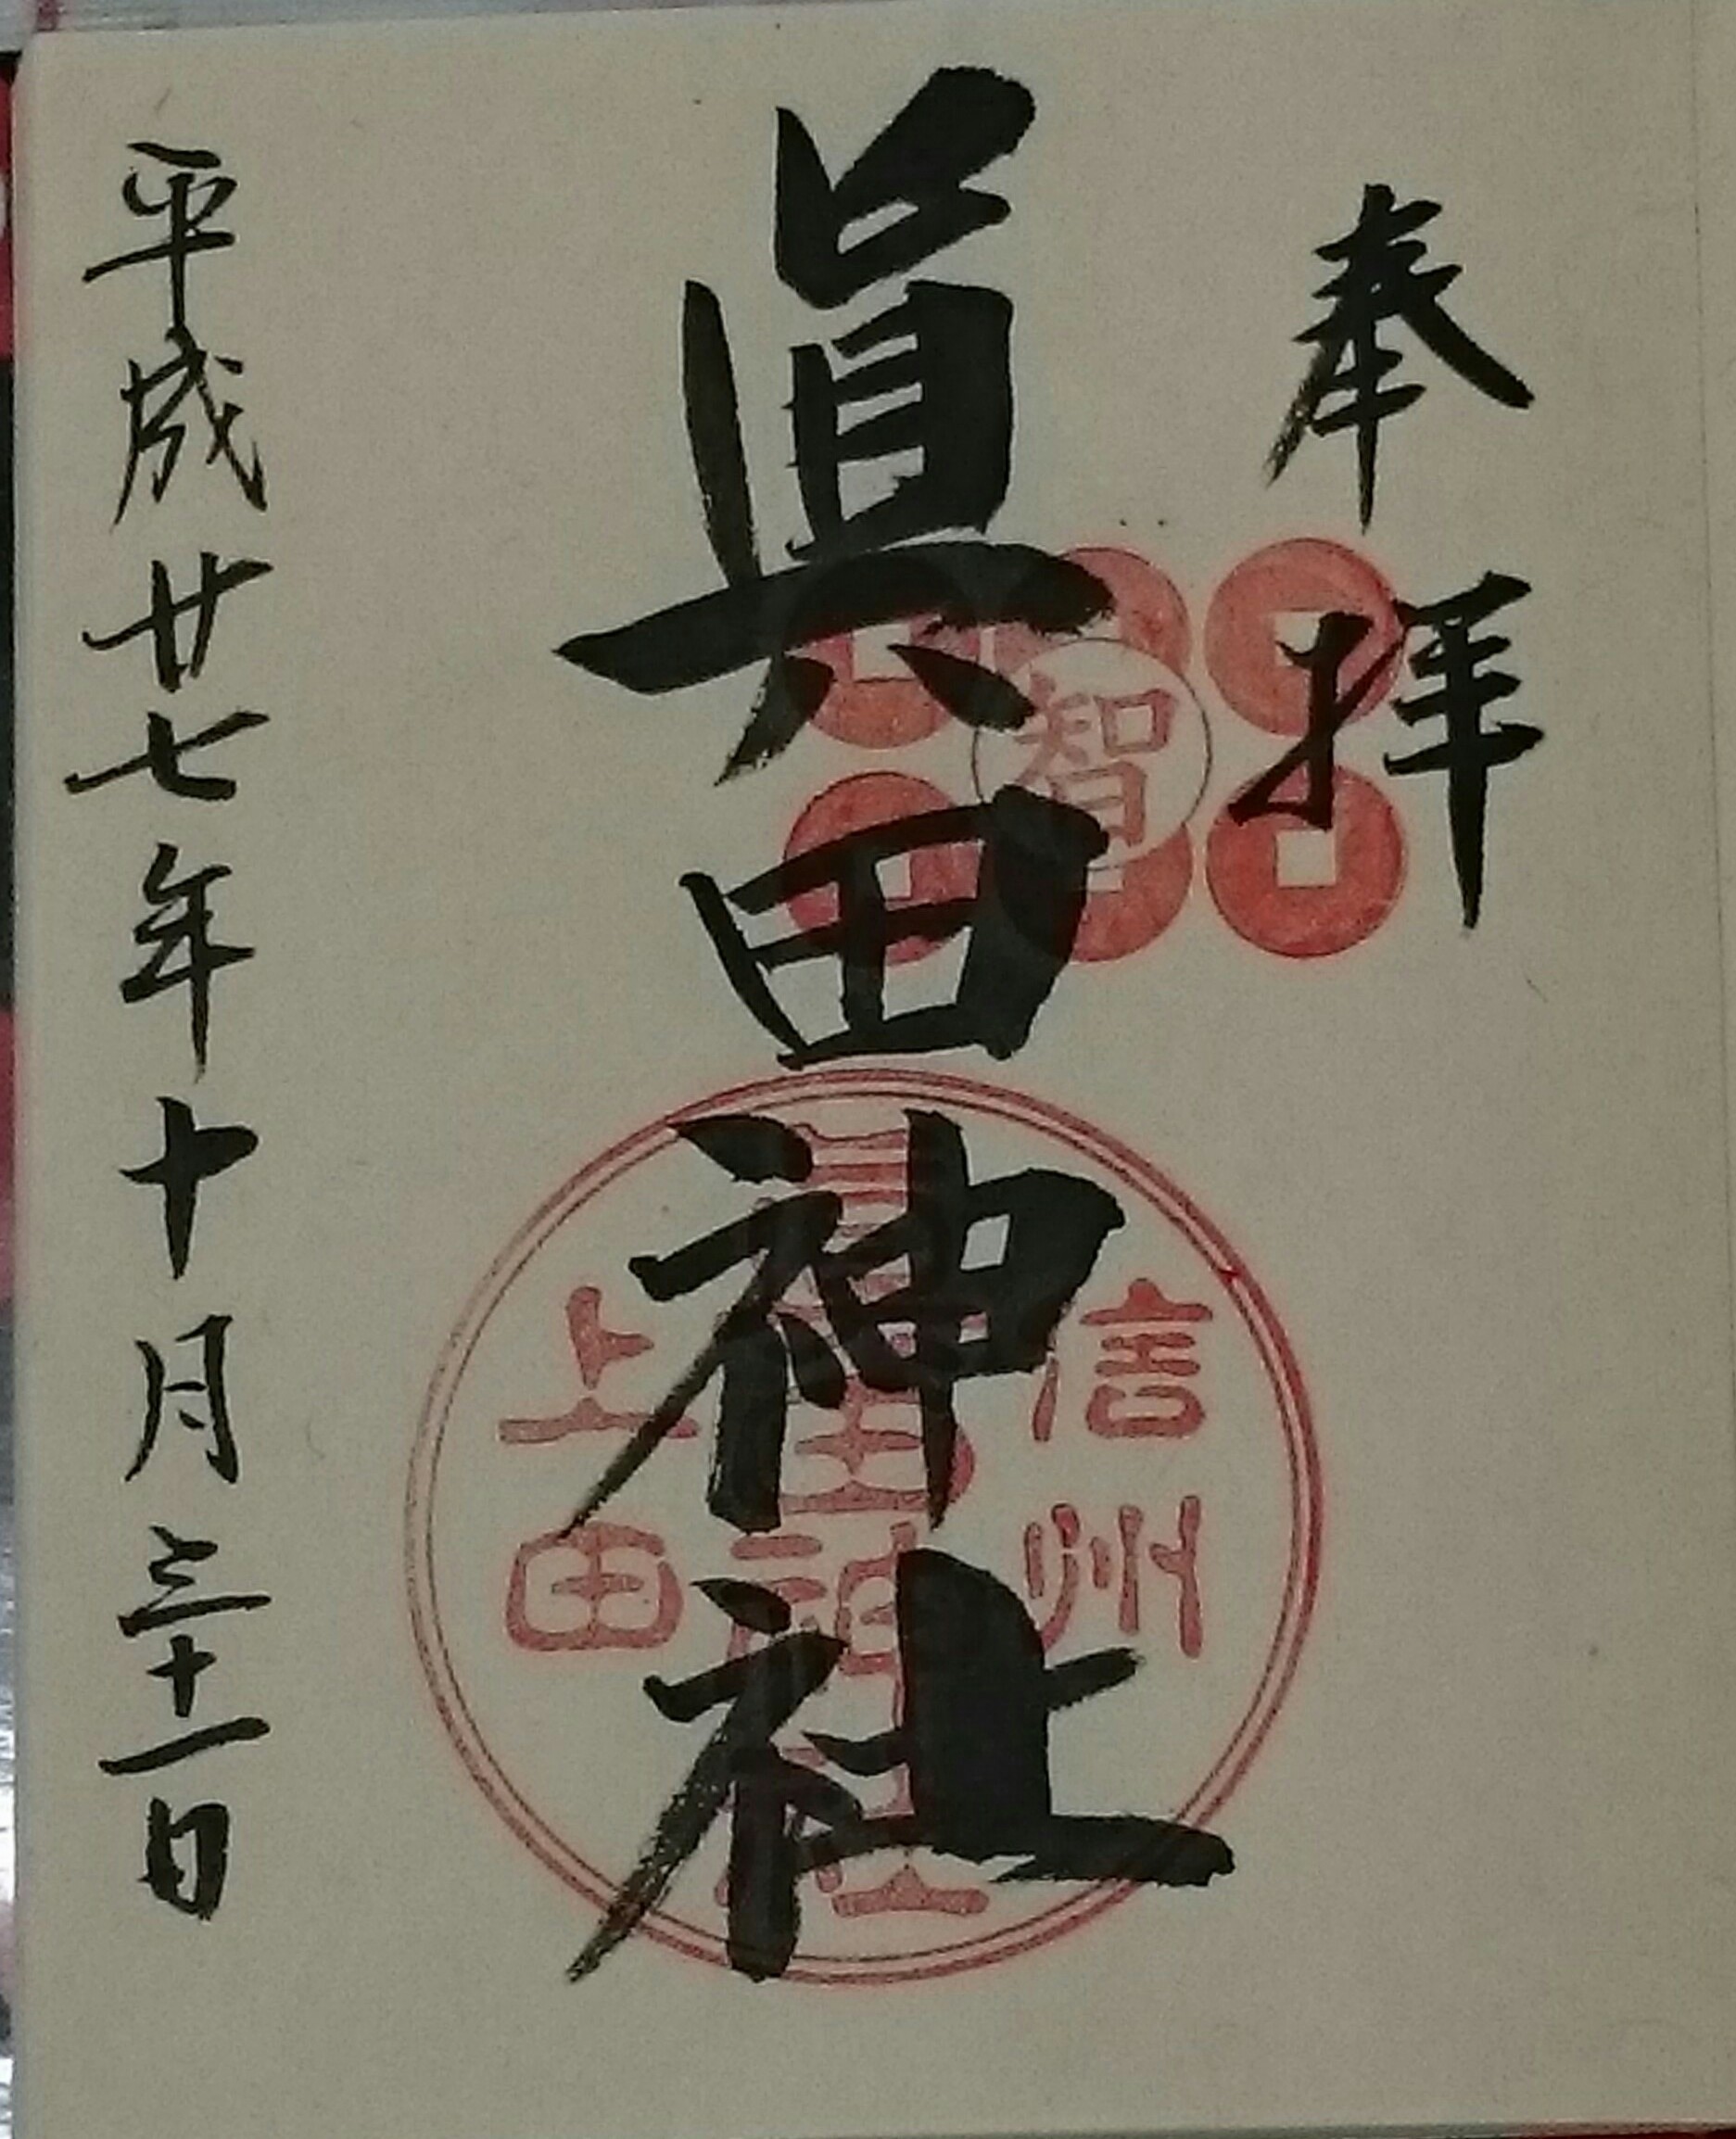 奉拝
智
眞田神社
信州
眞田神社
上田
平成廿七年十月三十一日